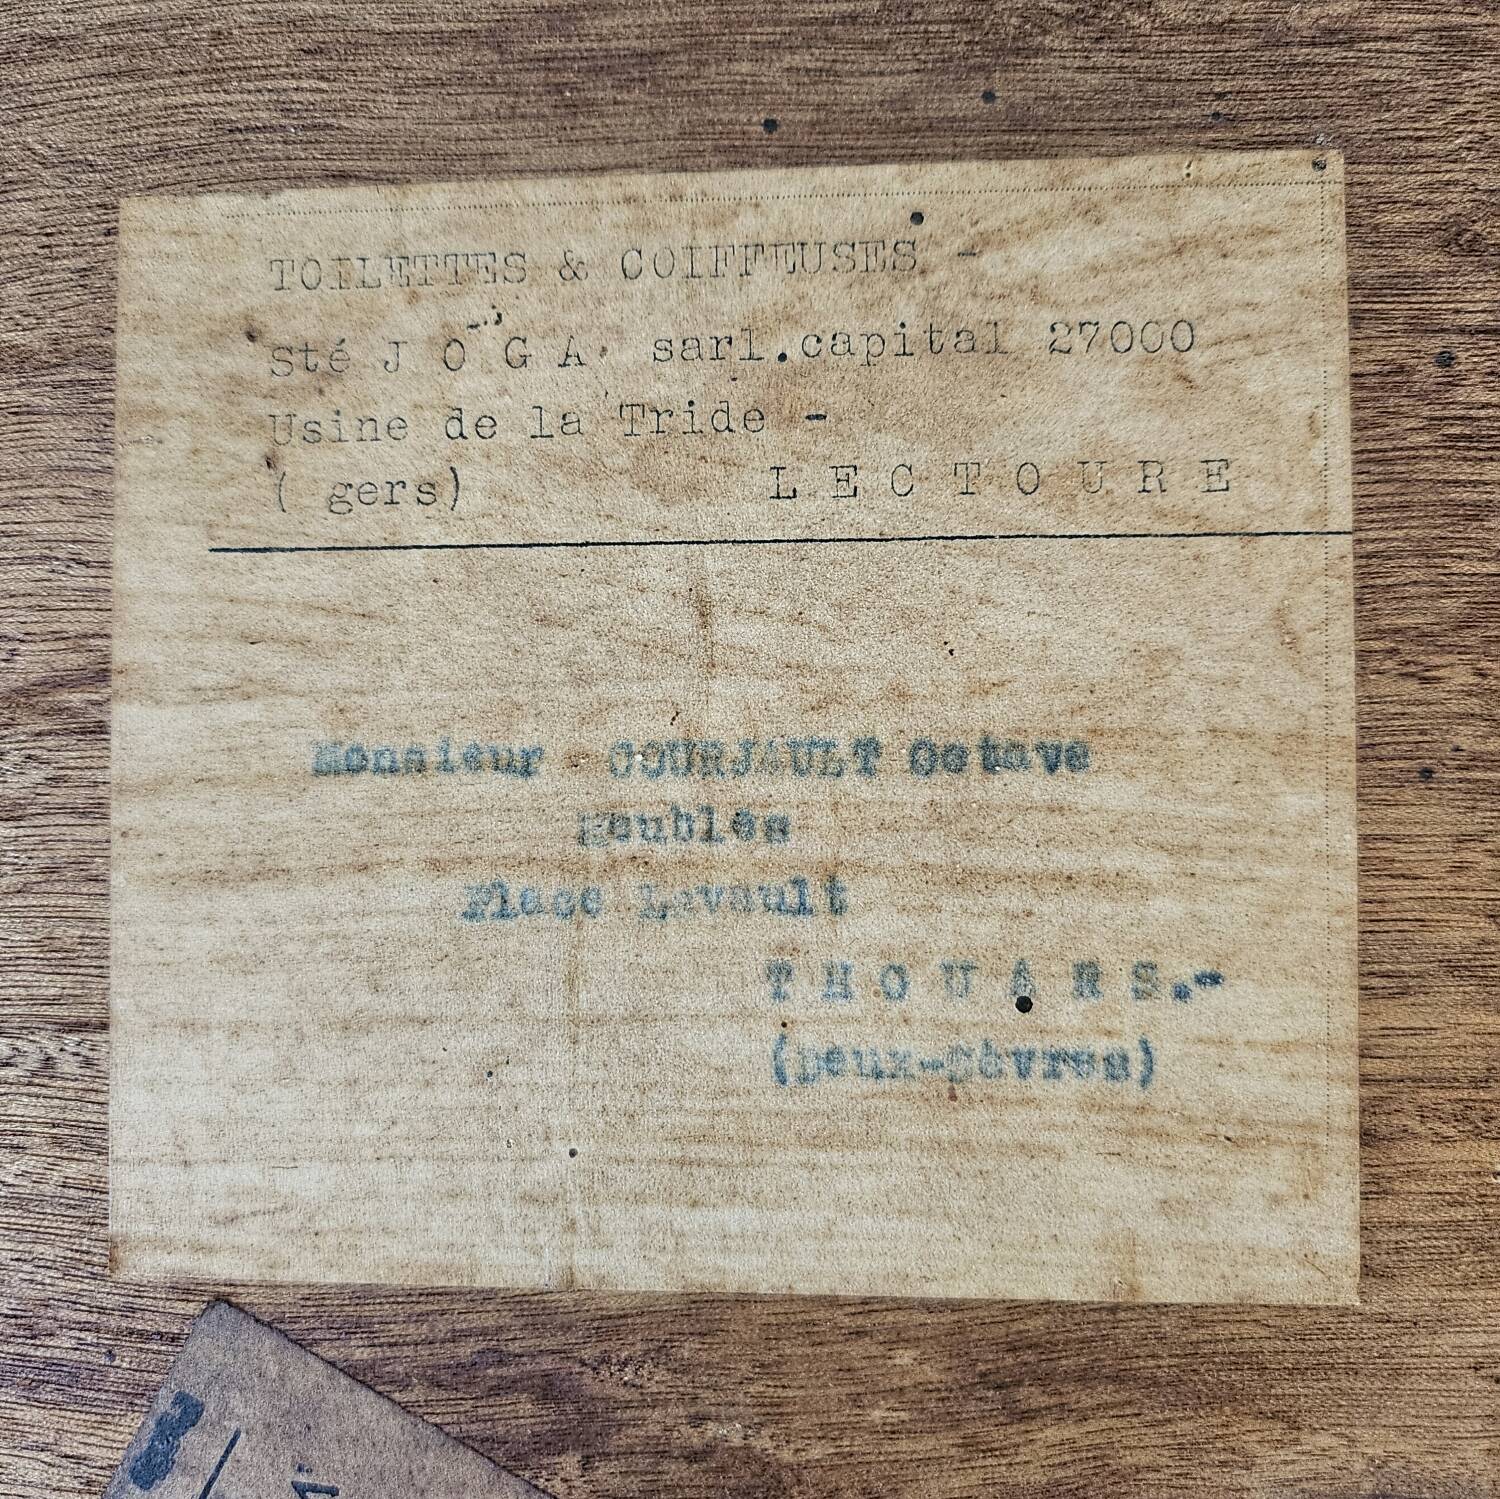 TOILETTES & COIFFEUSES -
Sté J O G A sarl.capital 27000
Usine de la Tride -
( gers) L E C T O U R E
Monsieur COURJAULT Octave
meubles
Place Lavault
T H O U A R S.-
(Deux-Sèvres)